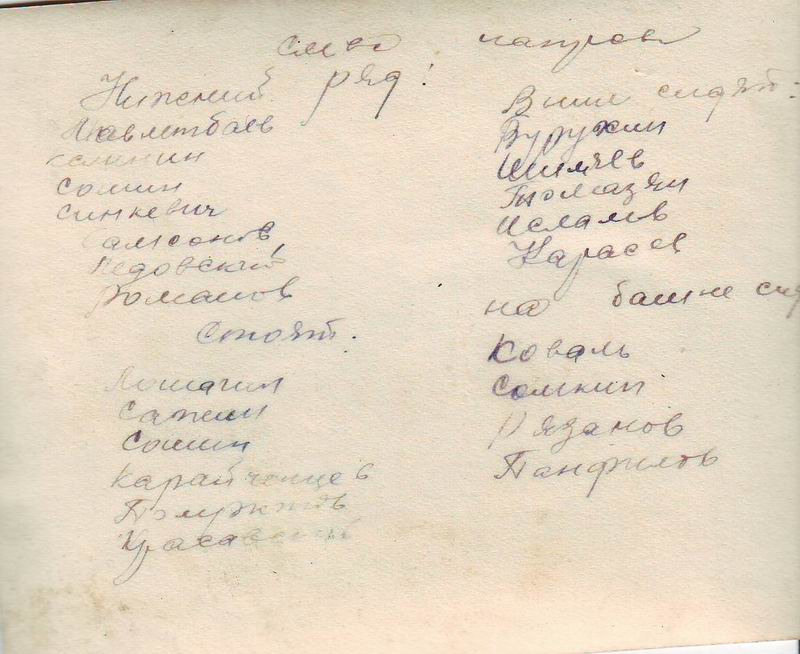 слева направо
Нижний ряд:
Давлетбаев
Калинин
Сомин
Синкевич
Самсонов,
Ледовский
Романов
Стоят.
Лошагин
Сажин
Сомин
Карайченцев
Полужктов
Красавский
Выше сидят:
Вурухин
Шимчев
Томазян
Исламов
Карасев
на башне
Коваль
Сомкин
Рязанов
Панфилов